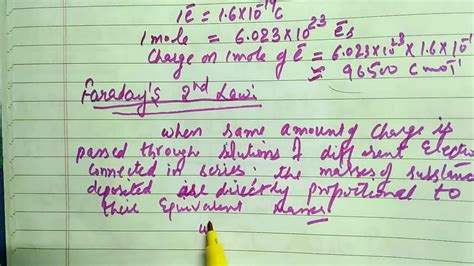 1ē = 1.6×10⁻¹⁹C
1 mole = 6.023×10²³ ēs
Charge on 1 mole of ē = 6.023×10²³×1.6×10⁻¹
≈ 96500 C mol⁻¹
Faraday's 2nd Law:
when same amount of charge is
passed through solutions of different Electro
connected in series; the masses of substance
deposited are directly proportional to
their Equivalent Masses